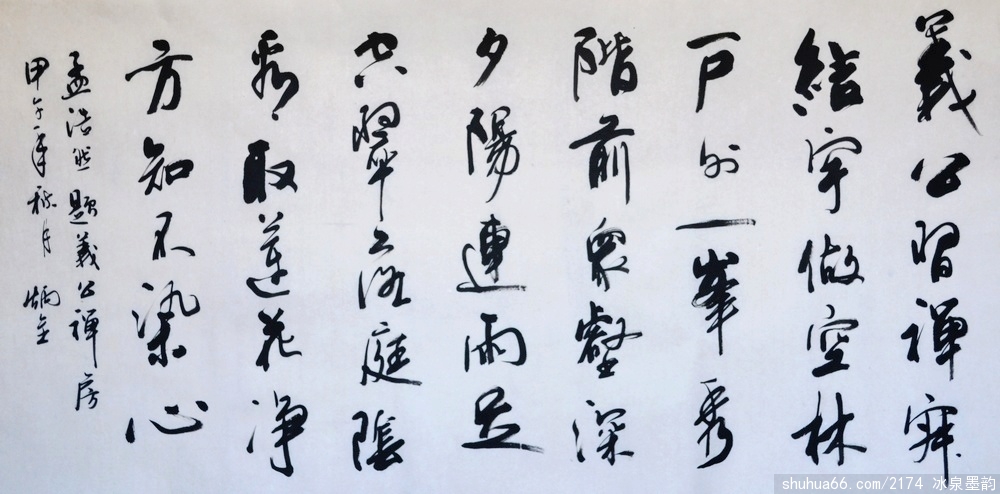 義公習禪寂
結宇做空林
户外一峯秀
階前衆壑深
夕陽連雨足
空翠落庭陰
看取蓮花净
方知不染心
孟浩然題義公禪房
甲午年秋月 炳
shuhua66.com/2174 冰泉墨韵